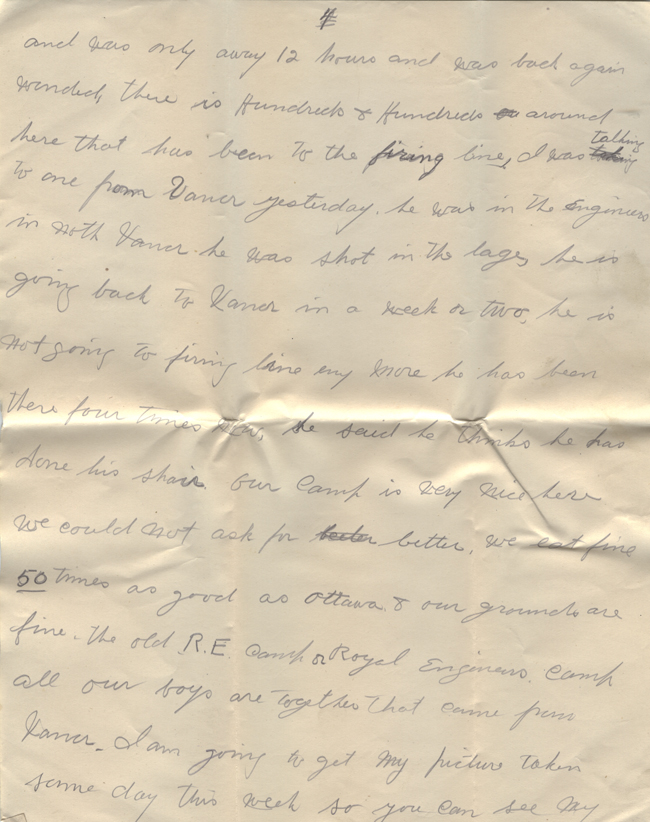 4
and was only away 12 hours and was back again
wonded, there is Hundreds & Hundreds or around
here that has been to the firing line, I was talking
to one from Vancr yesterday. he was in the Engineers
in noth Vancr. he was shot in the lages he is
going back to Vancr in a week or two, he is
not going to firing line eny more he has been
there four times now, he said he thinks he has
done his shair. Our Camp is very nice here
we could not ask for beeter better, we eat fine
50 times as good as Ottawa. & our grounds are
fine. the old R.E. Camp or Royal Engineers. Camp
all our boys are together that came from
Vancr. I am going to get my picture taken
some day this week so you can see my